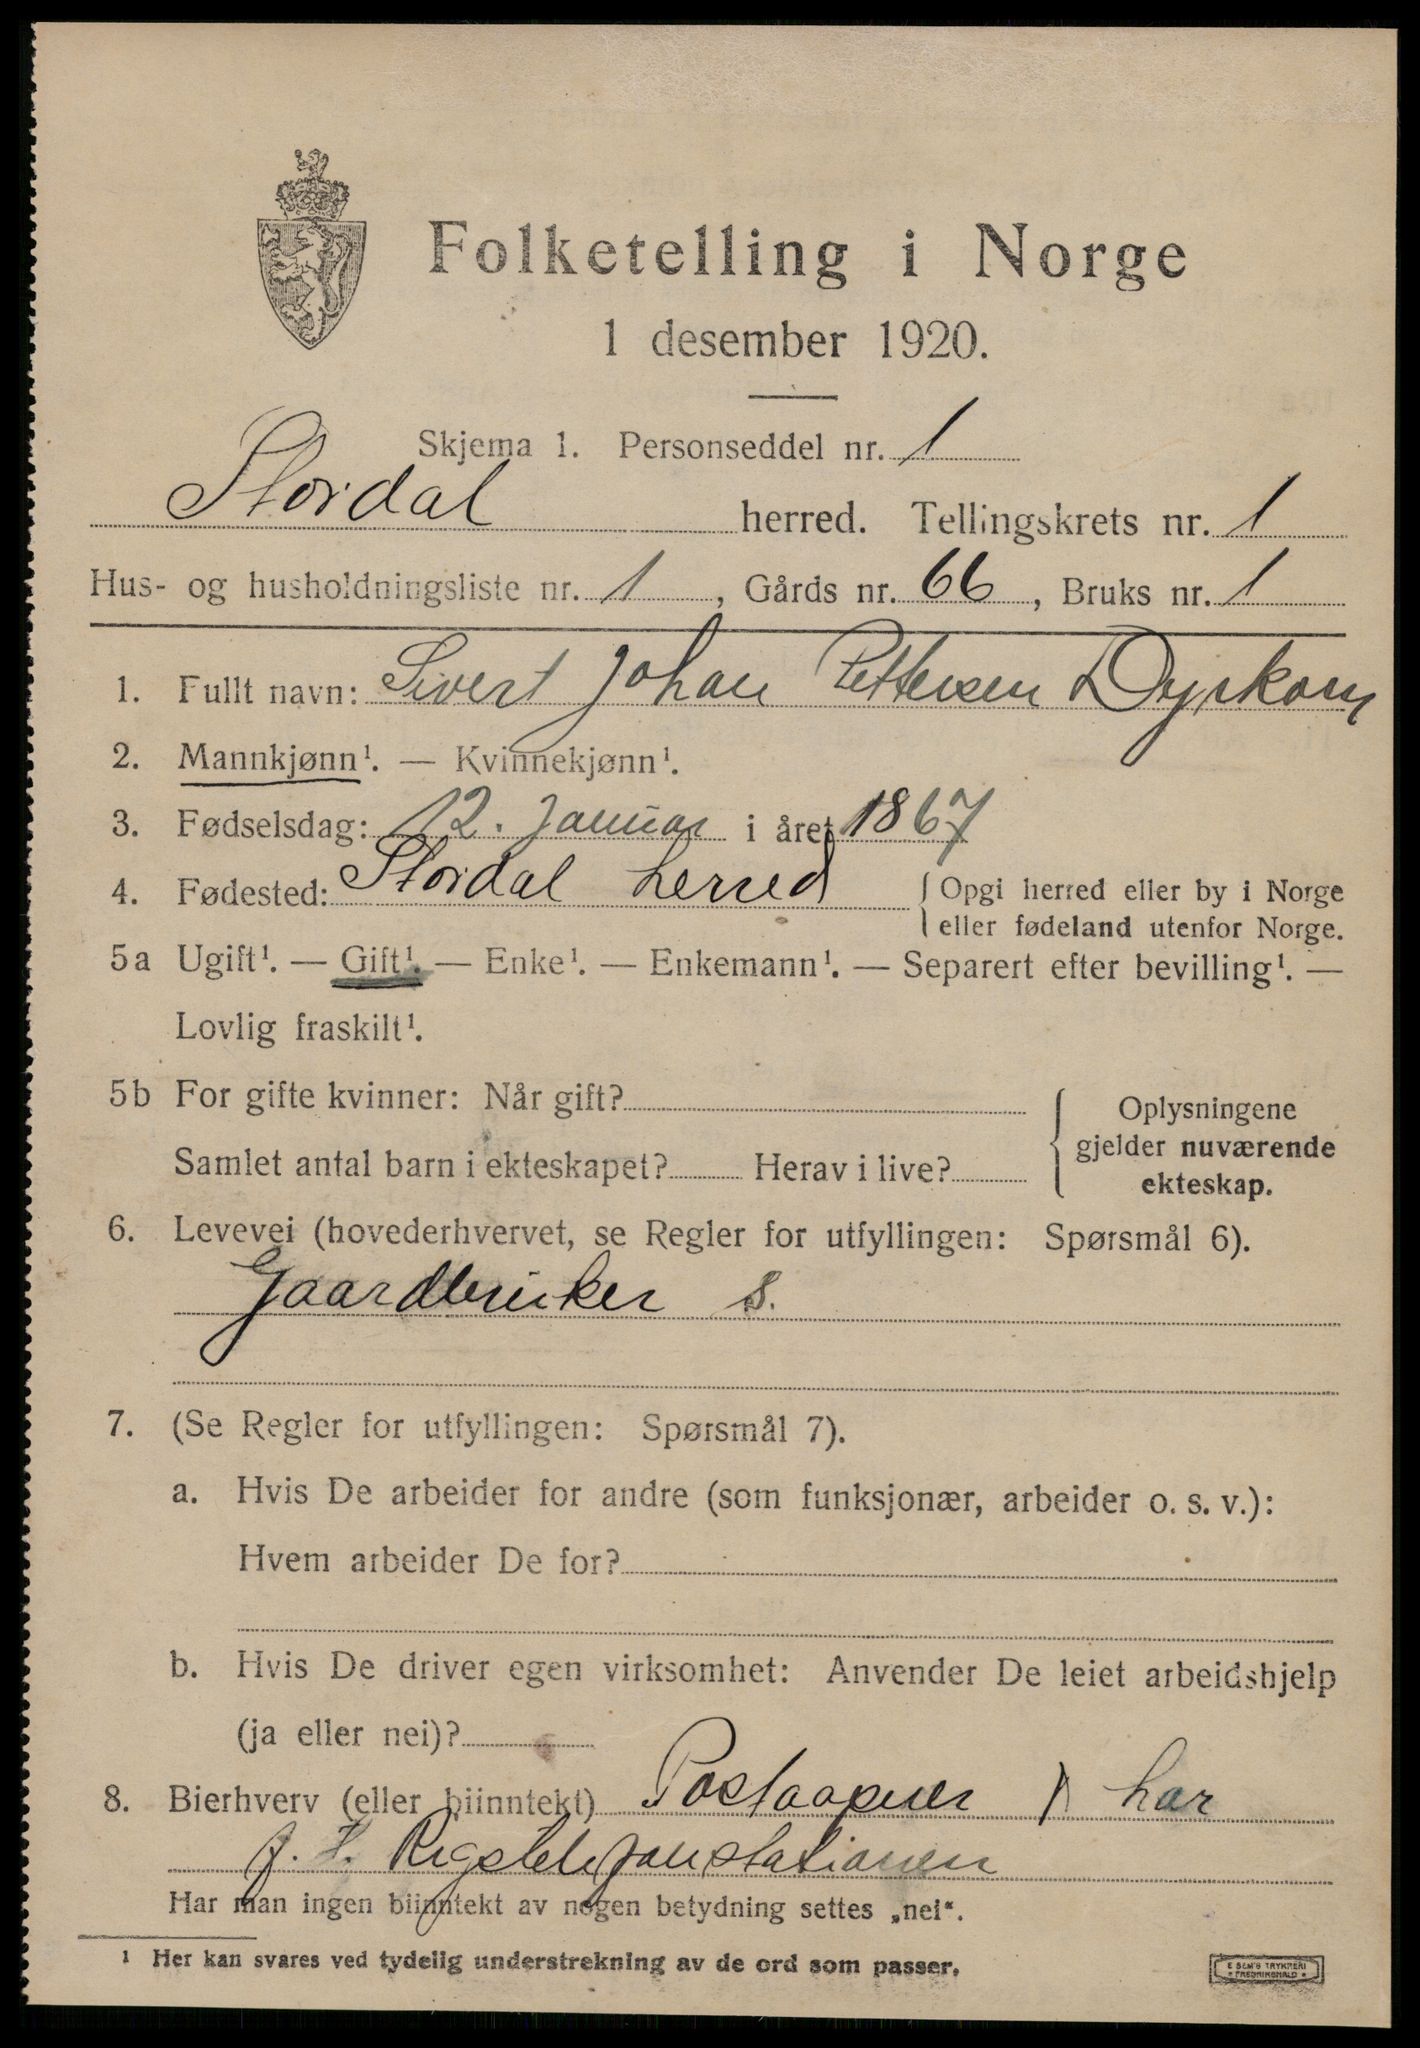 Folketelling i Norge
1 desember 1920.
Skjema 1. Personseddel nr. 1
Stordal herred. Tellingskrets nr. 1
Hus- og husholdningsliste nr. 1, Gårds nr. 66, Bruks nr. 1
1. Fullt navn: Sivert Johan Pettersen Dyrkorn
2. Mannkjønn¹. — Kvinnekjønn¹.
3. Fødselsdag: 12. Januar i året 1867
4. Fødested: Stordal herred { Opgi herred eller by i Norge
eller fødeland utenfor Norge.
5a Ugift¹. — Gift¹. — Enke¹. — Enkemann¹. — Separert efter bevilling¹. —
Lovlig fraskilt¹.
5b For gifte kvinner: Når gift?
Samlet antal barn i ekteskapet? Herav i live?
{ Oplysningene
gjelder nuværende
ekteskap.
6. Levevei (hovederhvervet, se Regler for utfyllingen: Spørsmål 6).
Gaardbruker s.
7. (Se Regler for utfyllingen: Spørsmål 7).
a. Hvis De arbeider for andre (som funksjonær, arbeider o. s. v.):
Hvem arbeider De for?
b. Hvis De driver egen virksomhet: Anvender De leiet arbeidshjelp
(ja eller nei)?
8. Bierhverv (eller biinntekt) Postaapner har
Rigstelefonstationen
Har man ingen biinntekt av nogen betydning settes „nei“.
¹ Her kan svares ved tydelig understrekning av de ord som passer.
E SEM'S TRYKKERI
FREDRIKSHALD